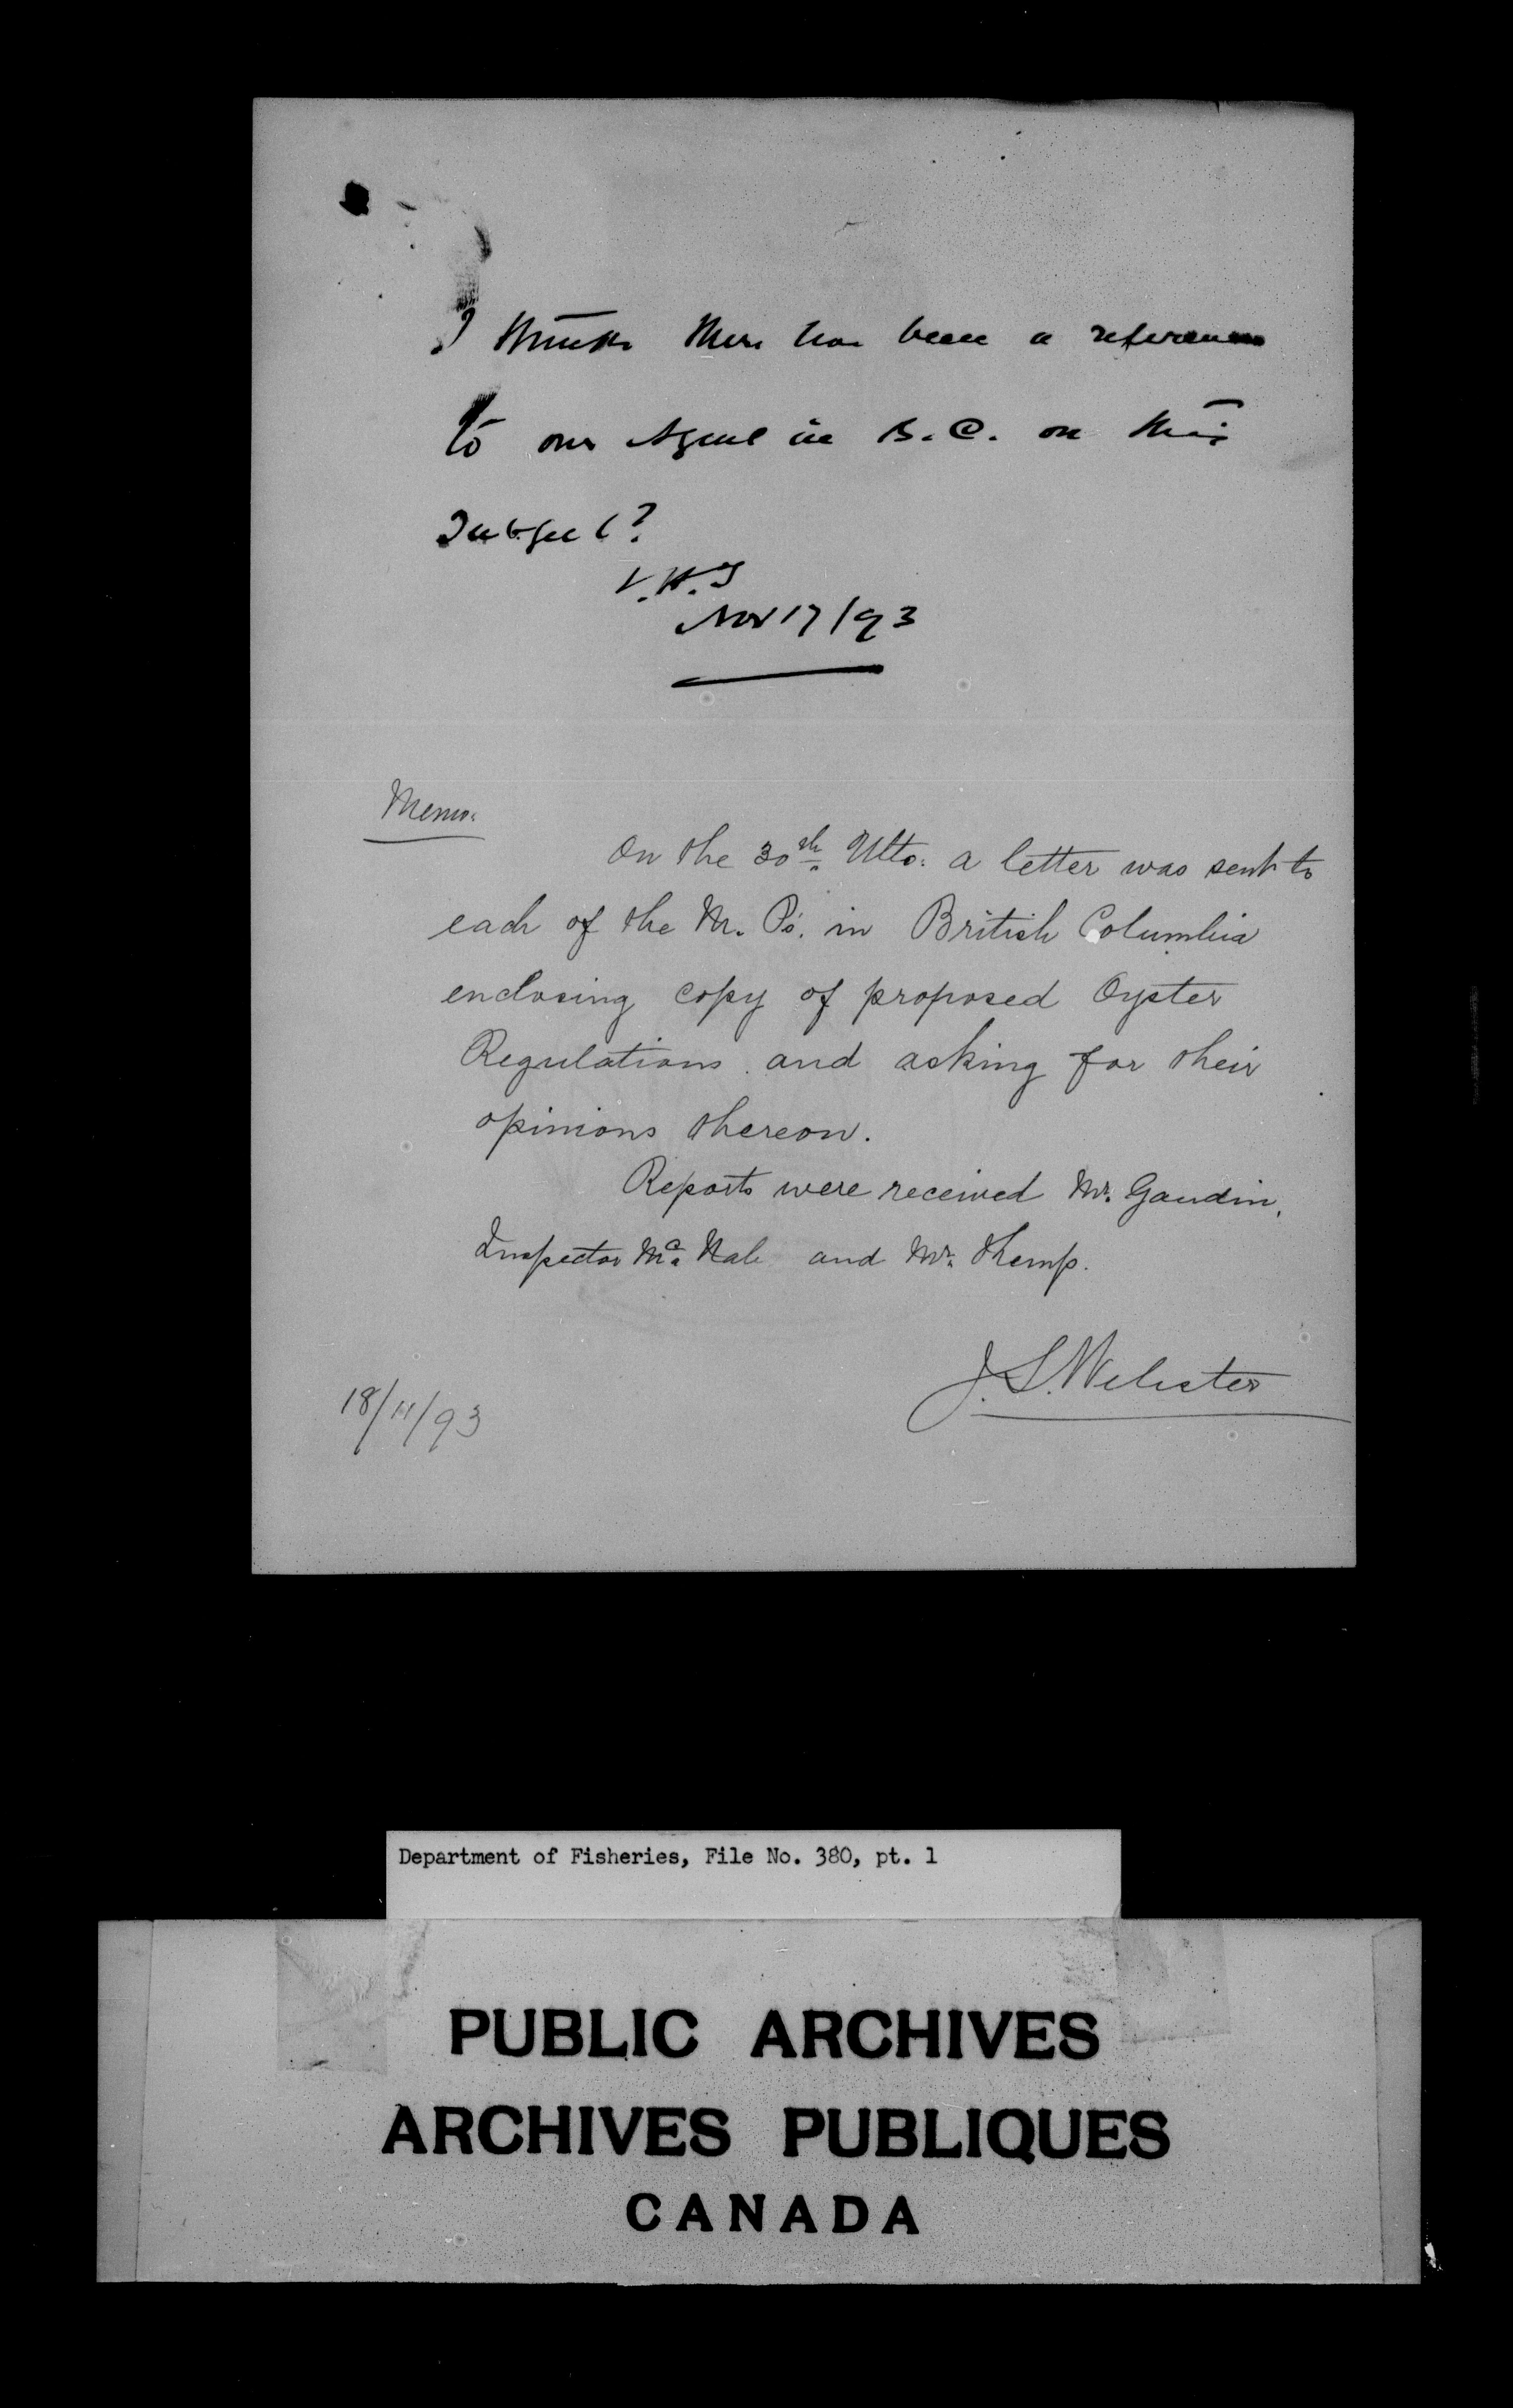 I think there has been a reference
to our Agent in B.C. on this
subject?
Nov 17/93
Memo.
On the 30th Ulto. a letter was sent to
each of the M. Ps. in British Columbia
enclosing copy of proposed Oyster
Regulations and asking for their
opinions thereon.
Reports were received Mr. Gaudin,
Inspector McNab and Mr. Kemp.
J. S. Webster
18/11/93
Department of Fisheries, File No. 380, pt. 1
PUBLIC ARCHIVES
ARCHIVES PUBLIQUES
CANADA